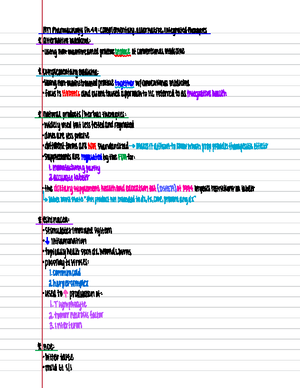 PM Pharmacology Ch 44: Complementary, Alternative, Integrated therapies
Alternative medicine:
- using non-mainstream practice instead of conventional medicine
Complementary medicine:
- using non-mainstream practice together w/ conventional medicine
- focus is towards and event toward approach to tx, referred to as integrative health
Natural products / herbal therapies:
- widely used but less tested and regulated
- some are less potent
- different forms are not standardized → makes it difficult to know which prep provides therapeutic effects
- supplements are regulated by the FDA for:
1. manufacturing purity
2. accurate labels
- the dietary supplement health and education act (DSHEA) of 1994 imposes restrictions on labels
→ labels must state "this product not intended to dx, tx, cure, prevent any dx"
Echinacea:
- stimulates immune system
- ↓ inflammation
- topically heals skin d/s, wounds, burns
- possibly tx viruses:
1. common cold
2. herpes simplex
- used to ↑ production of:
1. T lymphocytes
2. tumor necrosis factor
3. interferon
- bitter taste
- mild GI s/s